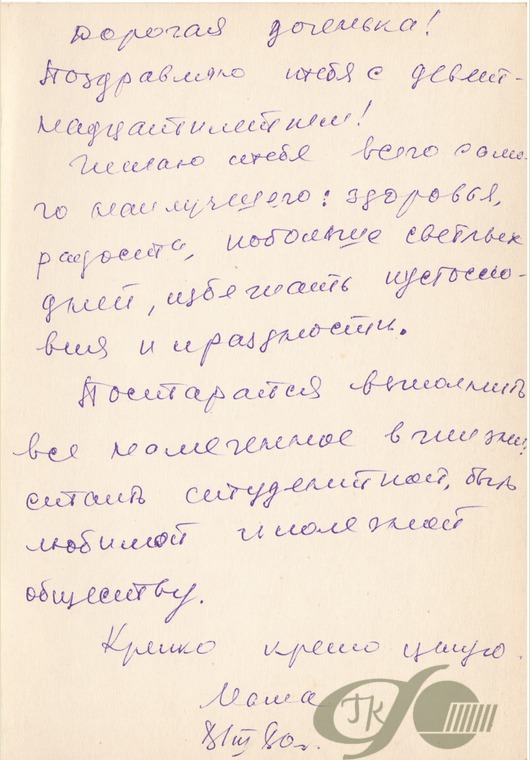 Дорогая доченька!
Поздравляю тебя с девят-
надцатилетием!
Желаю тебе всего само-
го наилучшего: здоровья,
радости, побольше светлых
дней, избежать пустосло-
вия и праздности.
Постарайся выполнить
все намеченное в жизни:
стать студенткой, быть
любимой и полезной
обществу.
Крепко крепко целую.
Мама
III 80г.
ГК